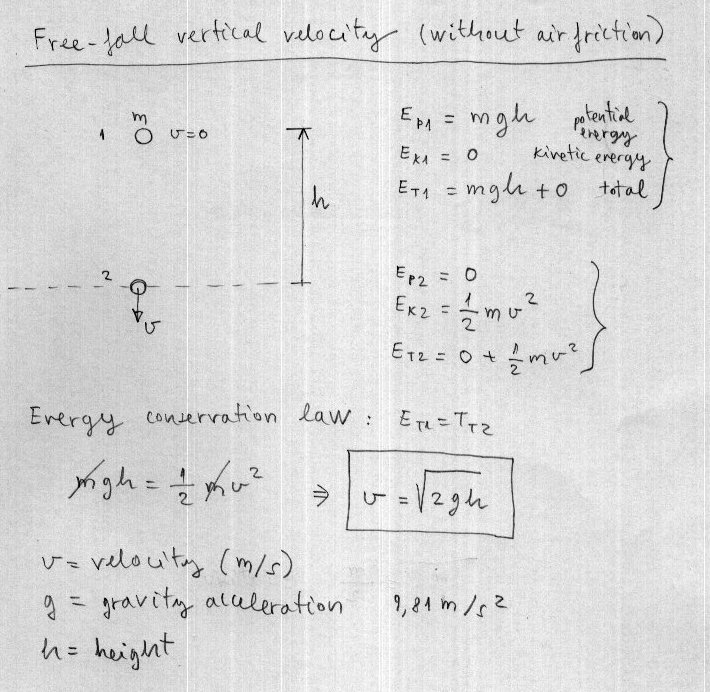 Free-fall vertical velocity (without air friction)
m
1 v=0
h
E_P1 = mgh potential energy
E_K1 = 0 kinetic energy
E_T1 = mgh + 0 total
2
v
E_P2 = 0
E_K2 = 1/2 m v²
E_T2 = 0 + 1/2 m v²
Energy conservation law : E_T1 = T_T2
mgh = 1/2 m v² ⇒ v = √2gh
v = velocity (m/s)
g = gravity acceleration 9,81 m/s²
h = height